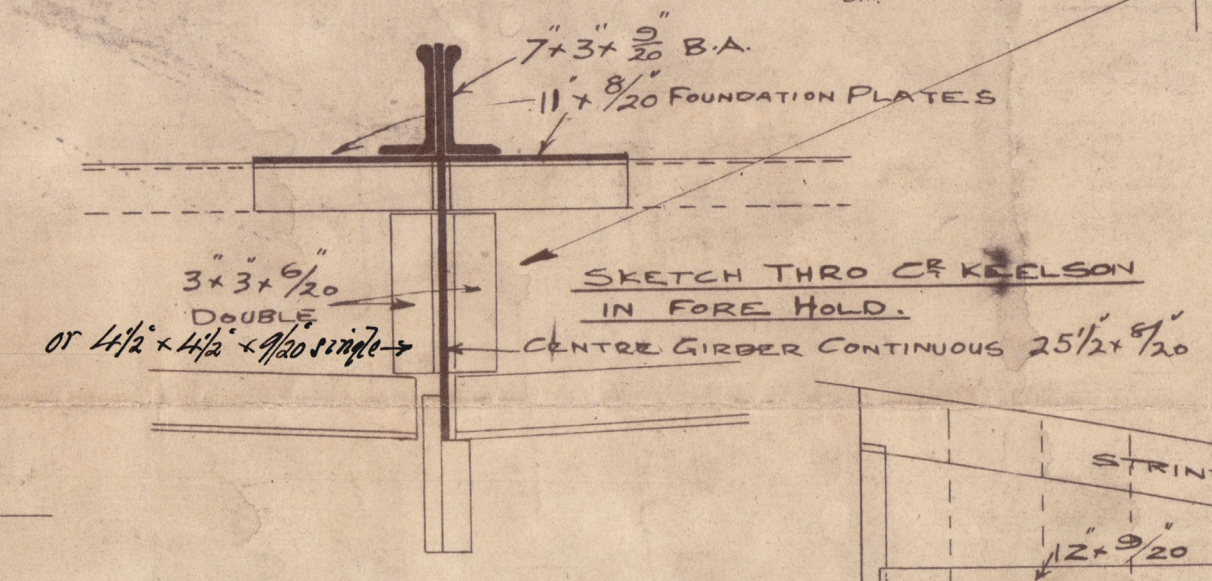 7" × 3" × 9/20" B.A.
11" × 8/20" FOUNDATION PLATES
3" × 3" × 6/20"
DOUBLE
or 4½" × 4½" × 9/20" single
SKETCH THRO CR KEELSON
IN FORE HOLD.
CENTRE GIRDER CONTINUOUS 25½" × 8/20"
STRIN
12" × 9/20